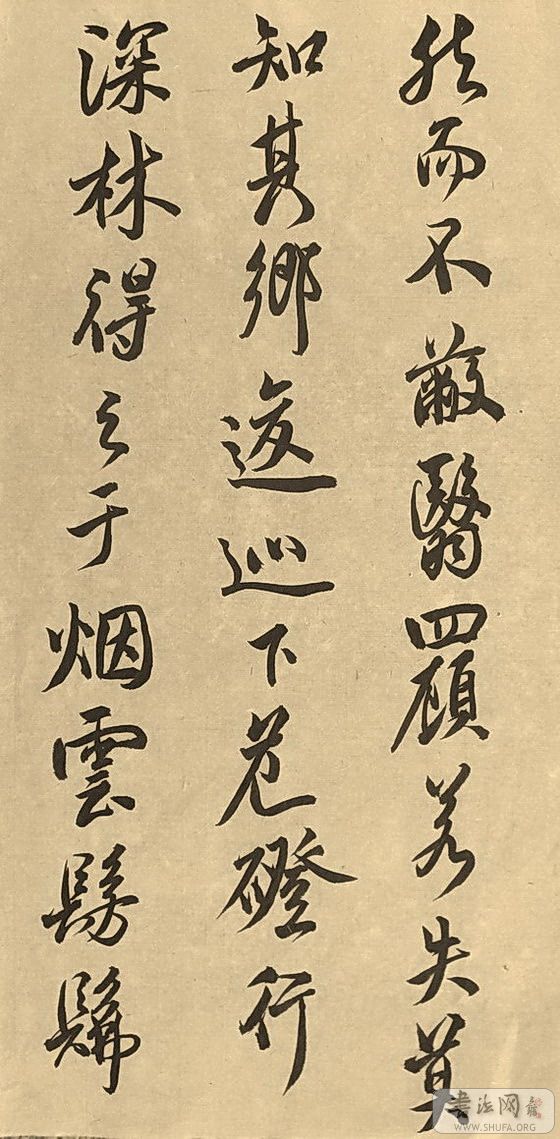 然而不蔽翳四顧若失莫
知其鄉逡巡下危磴行
深林得之于烟雲髣髴
書法网
WWW.SHUFA.ORG